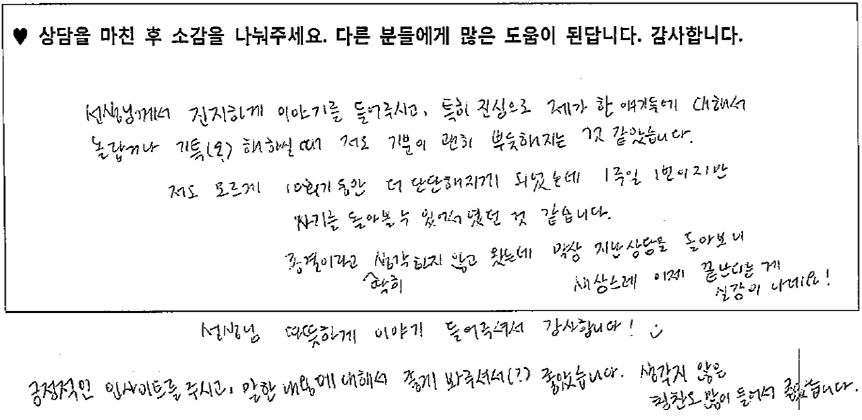 ♥ 상담을 마친 후 소감을 나눠주세요. 다른 분들에게 많은 도움이 된답니다. 감사합니다.
선생님께서 진지하게 이야기를 들어주시고, 특히 진심으로 제가 한 얘기들에 대해서
놀랍거나 기특(요?) 해하실 때 저도 기분이 괜히 뿌듯해지는 것 같았습니다.
저도 모르게 10회기 동안 더 단단해지게 되었는데 1주일 1번이지만
자기를 돌아볼 수 있어서 였던 것 같습니다.
종결이라고 생각하지 않고 왔는데 막상 지난 상담을 돌아보니
딱히
새삼스레 이제 끝난다는 게
실감이 나네요!
선생님 따뜻하게 이야기 들어주셔서 감사합니다! :)
긍정적인 인사이트를 주시고, 말한 내용에 대해서 좋게 봐주셔서(?) 좋았습니다. 생각지 않은
칭찬도 많이 들어서 좋았습니다.